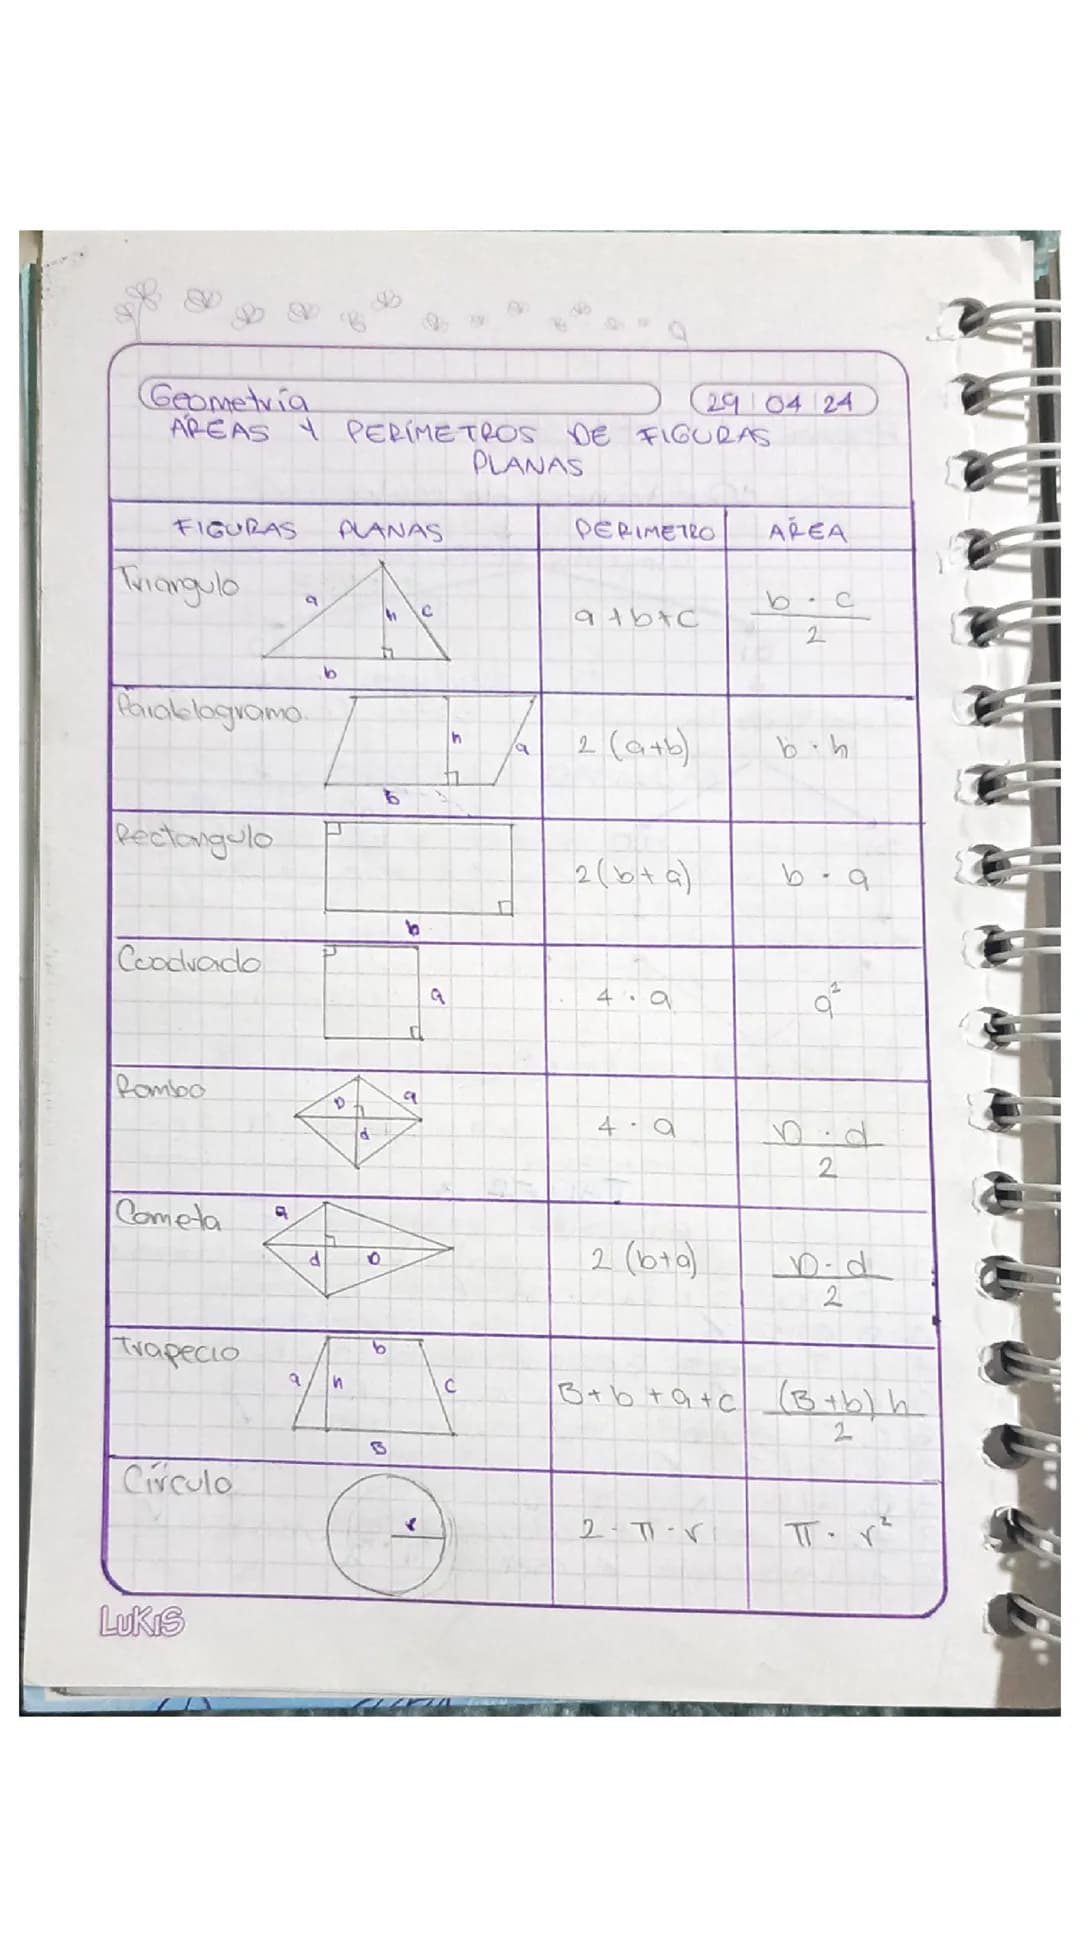 Geometría
29 04 24
ÁREAS Y PERÍMETROS DE FIGURAS
PLANAS
FIGURAS PLANAS PERIMETRO ÁREA
Triangulo
a h c
b
a+b+c
b · c
2
Paralelogramo
h a
b
2 (a+b)
b · h
Rectangulo
b
2(b+a)
b · a
Cuadrado
a
4 · a
a²
Rombo
D a
d
4 · a
D · d
2
Cometa
a
d D
2 (b+a)
D · d
2
Trapecio
b
a h c
B
B+b+a+c
(B+b) h
2
Círculo
r
2 · π · r
π · r²
LUKIS